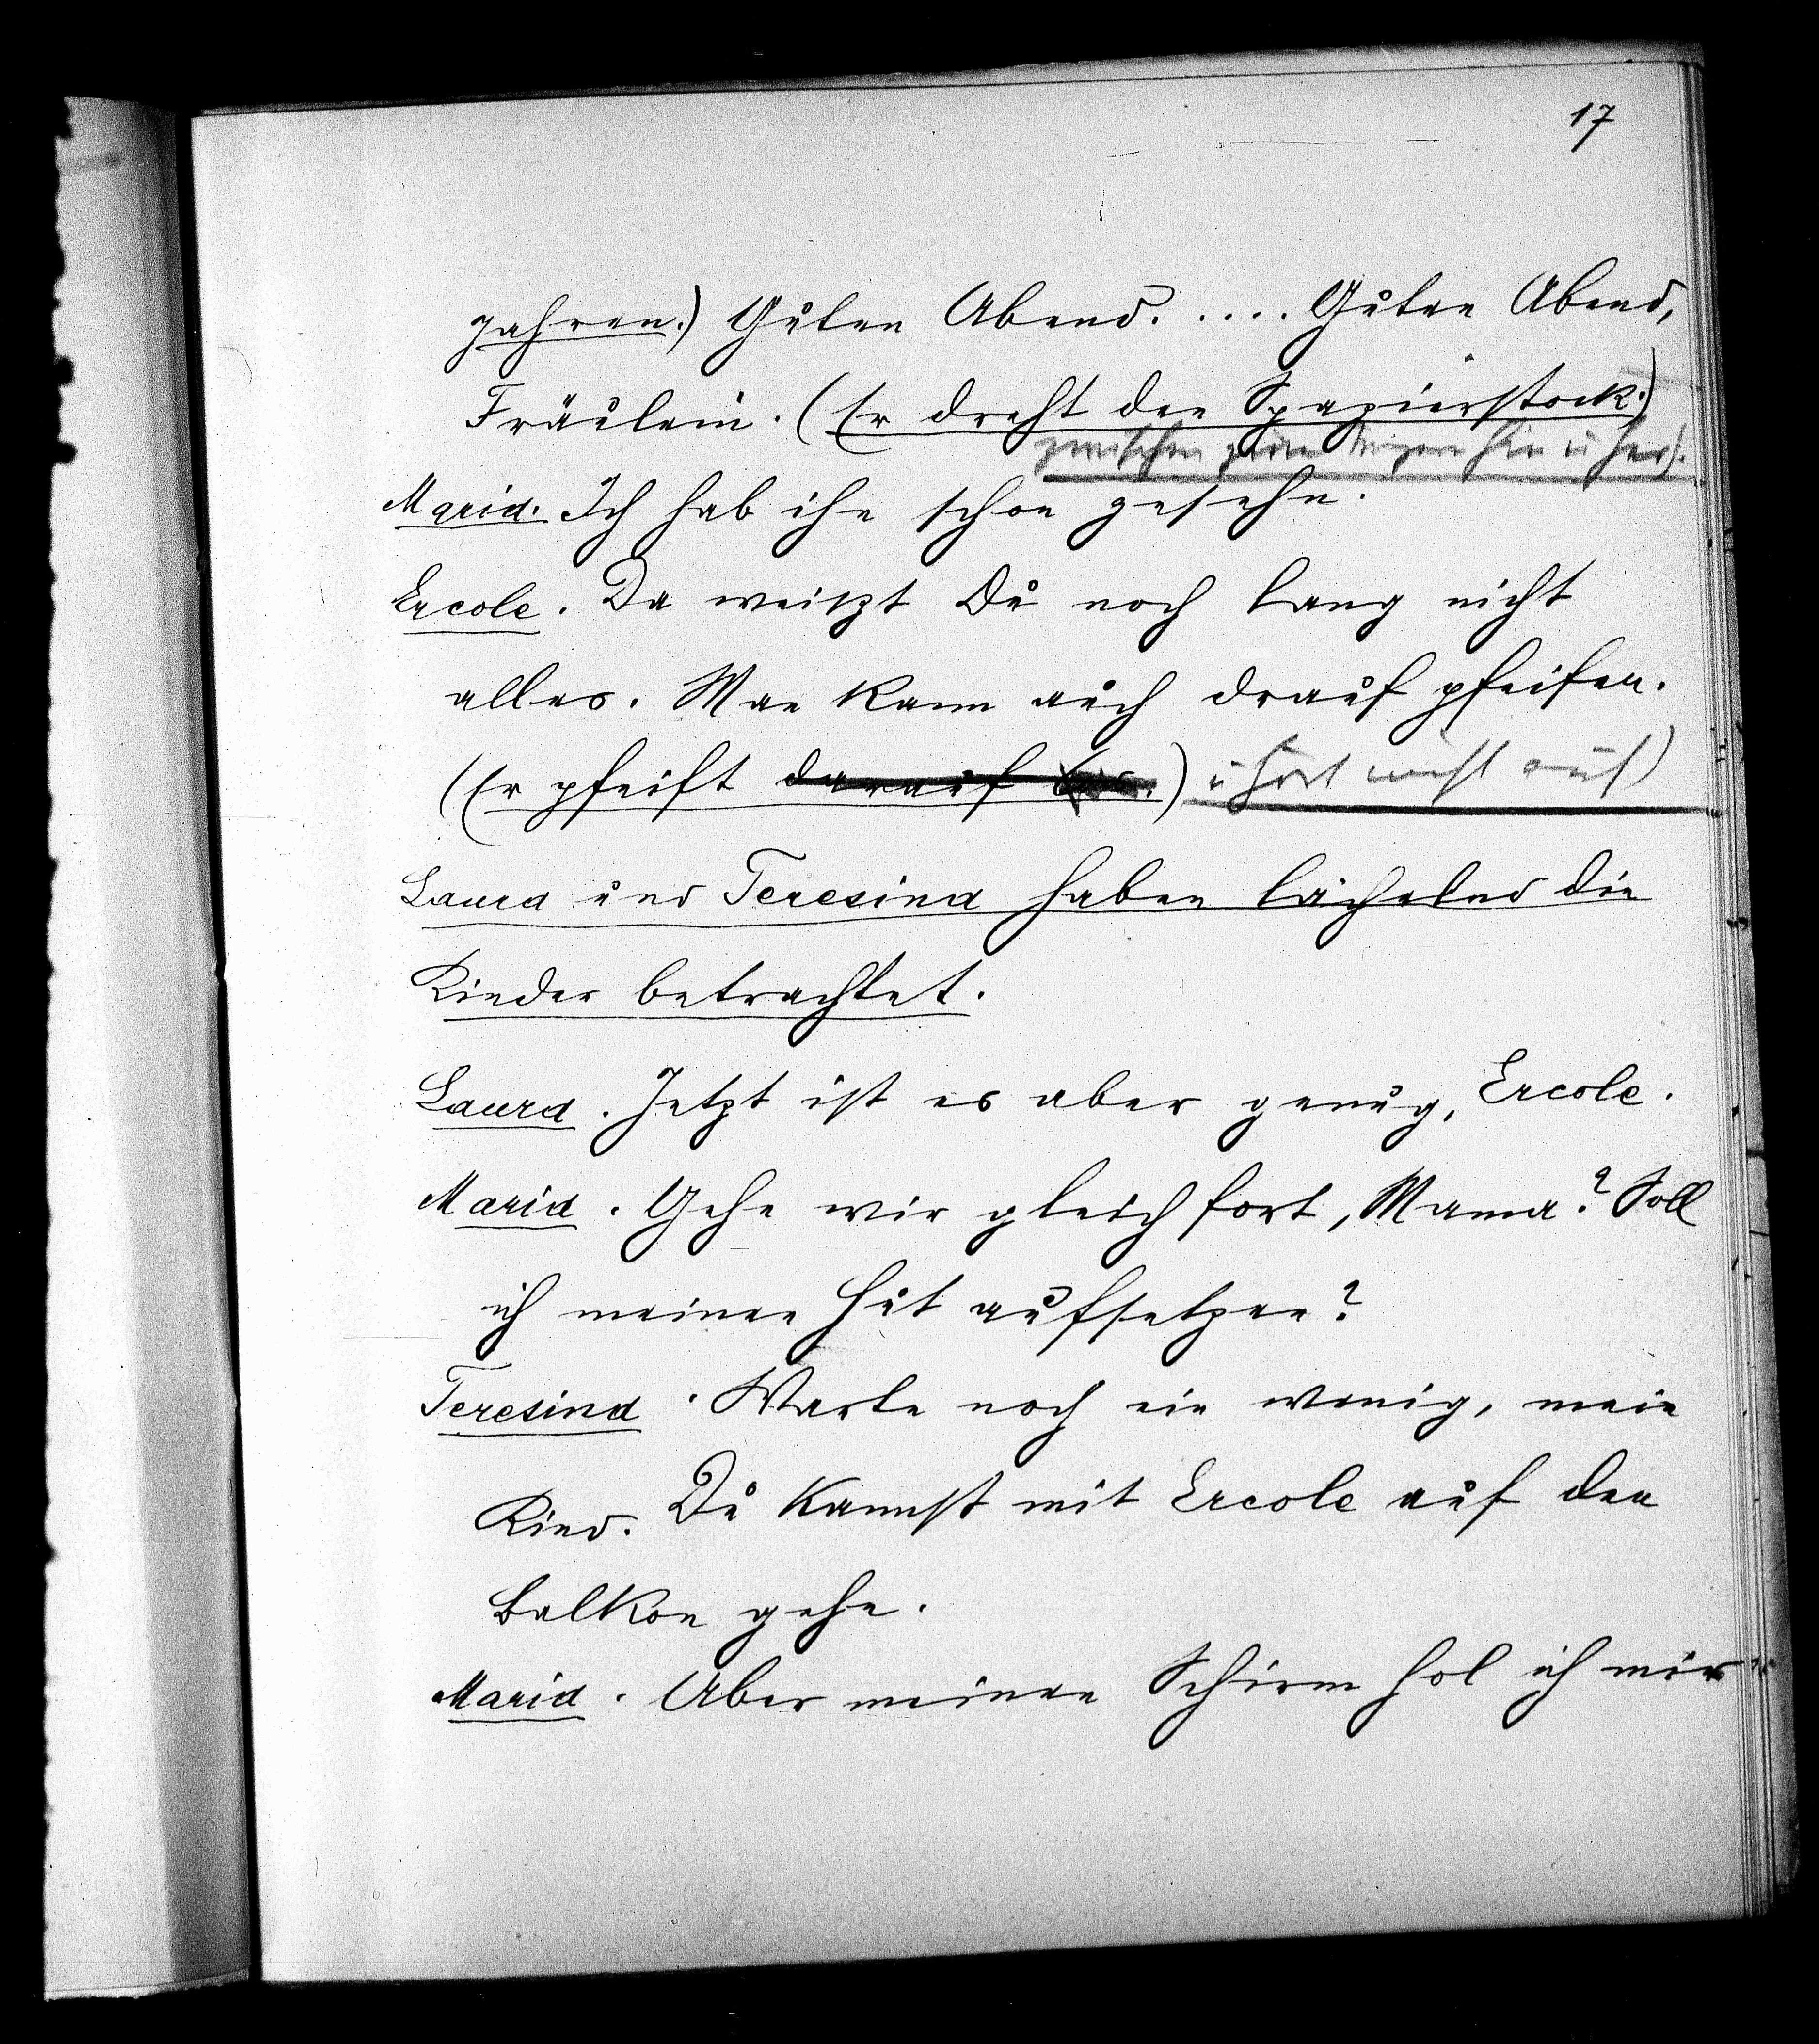 17
fahren.) Guten Abend. .... Guten Abend,
Fräulein. (Er dreht den Spazierstock.)
zwischen hin u her).
Maria. Ich hab ihn schon gesehn.
Ercole. Da weißt Du noch lang nicht
alles. Man kann auch drauf pfeifen.
(Er pfeift darauf) u hört nicht auf)
Laura und Teresina haben lächelnd die
Kinder betrachtet.
Laura. Jetzt ist es aber genug, Ercole.
Maria. Gehn wir gleich fort, Mama? Soll
ich meinen Hut aufsetzen?
Teresina. Warte noch ein wenig, mein
Kind. Du kannst mit Ercole auf den
Balkon gehn.
Maria. Aber meinen Schirm hol ich mir